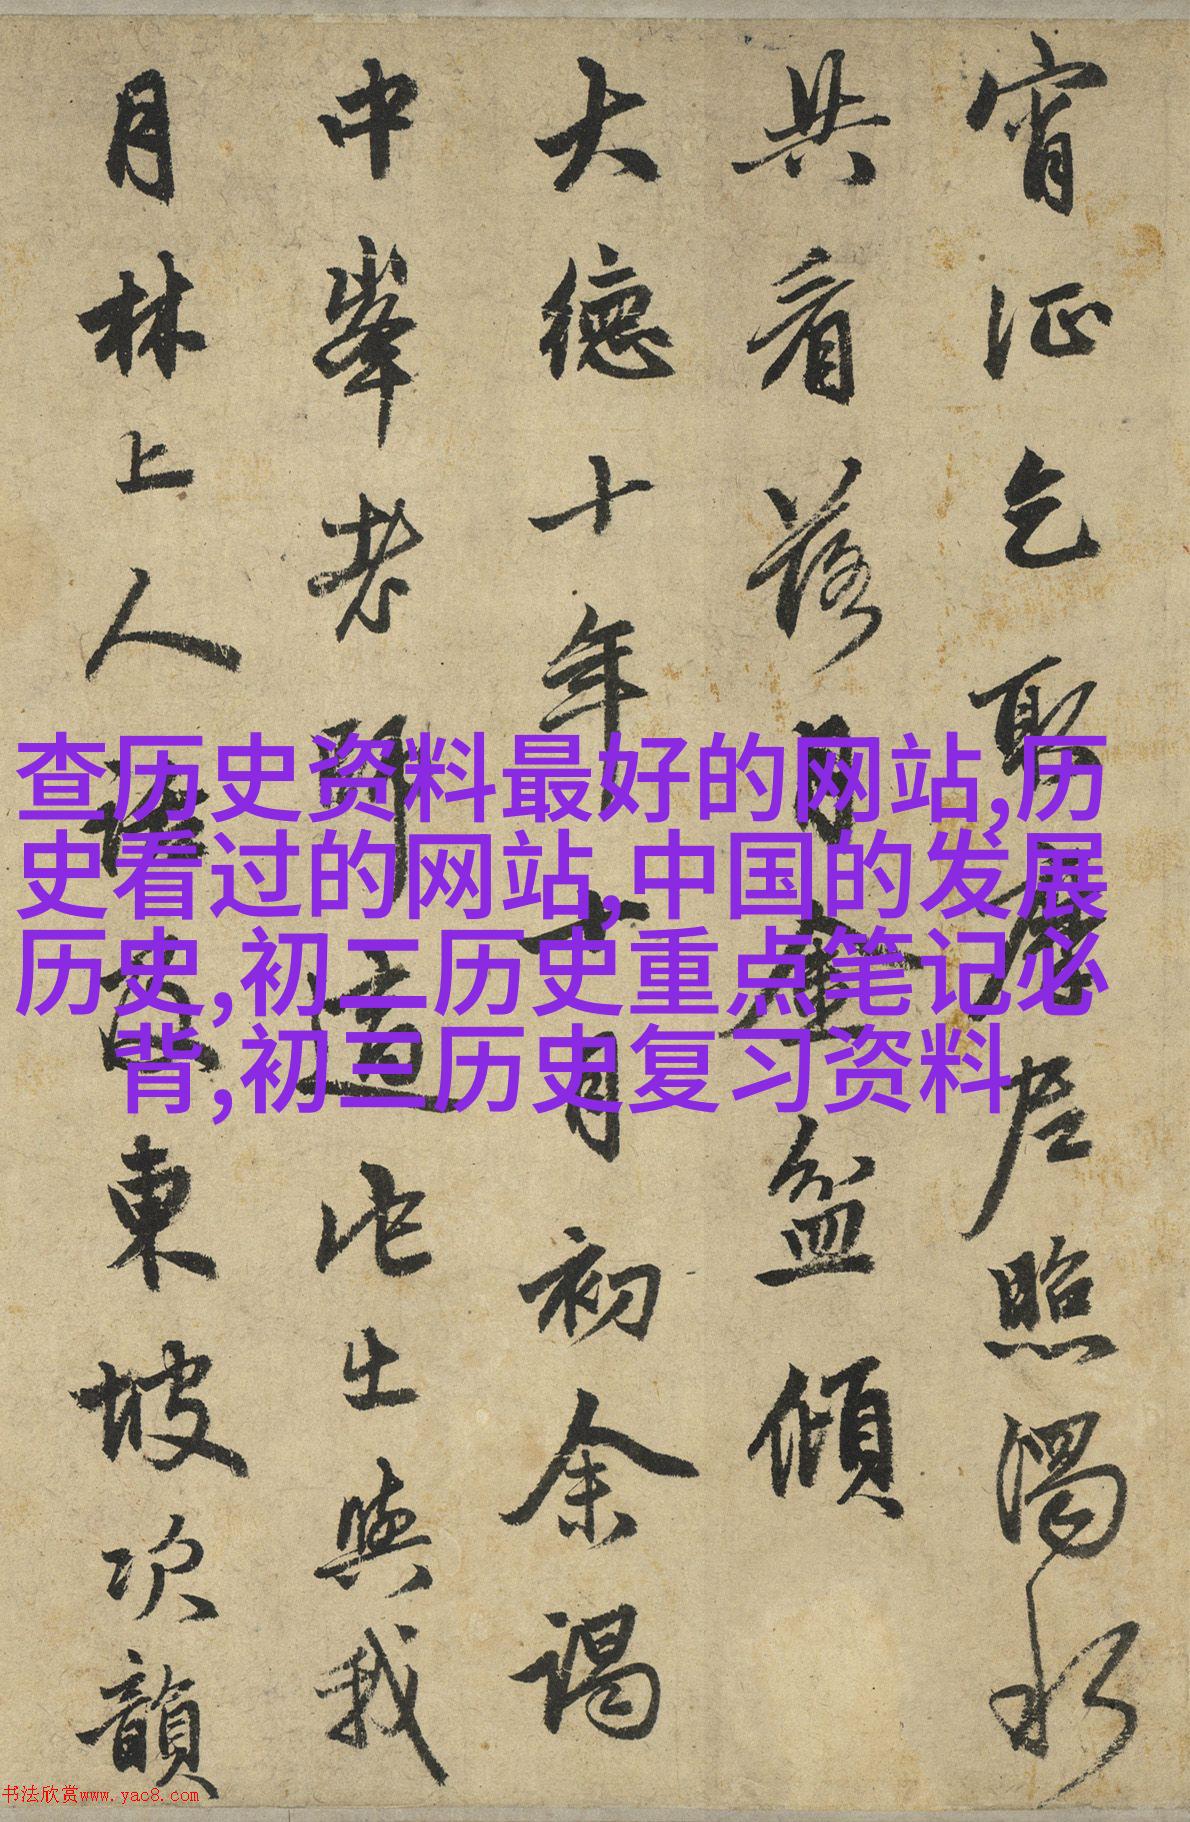 宵征乞取摩尼照濁水
共看落月金盆傾
大德十年十月初余謁
中峯老師適他出與我
月林上人語東坡次韻
查历史资料最好的网站,历
史看过的网站,中国的发展
历史,初二历史重点笔记必
背,初三历史复习资料
书法欣赏www.yac8.com